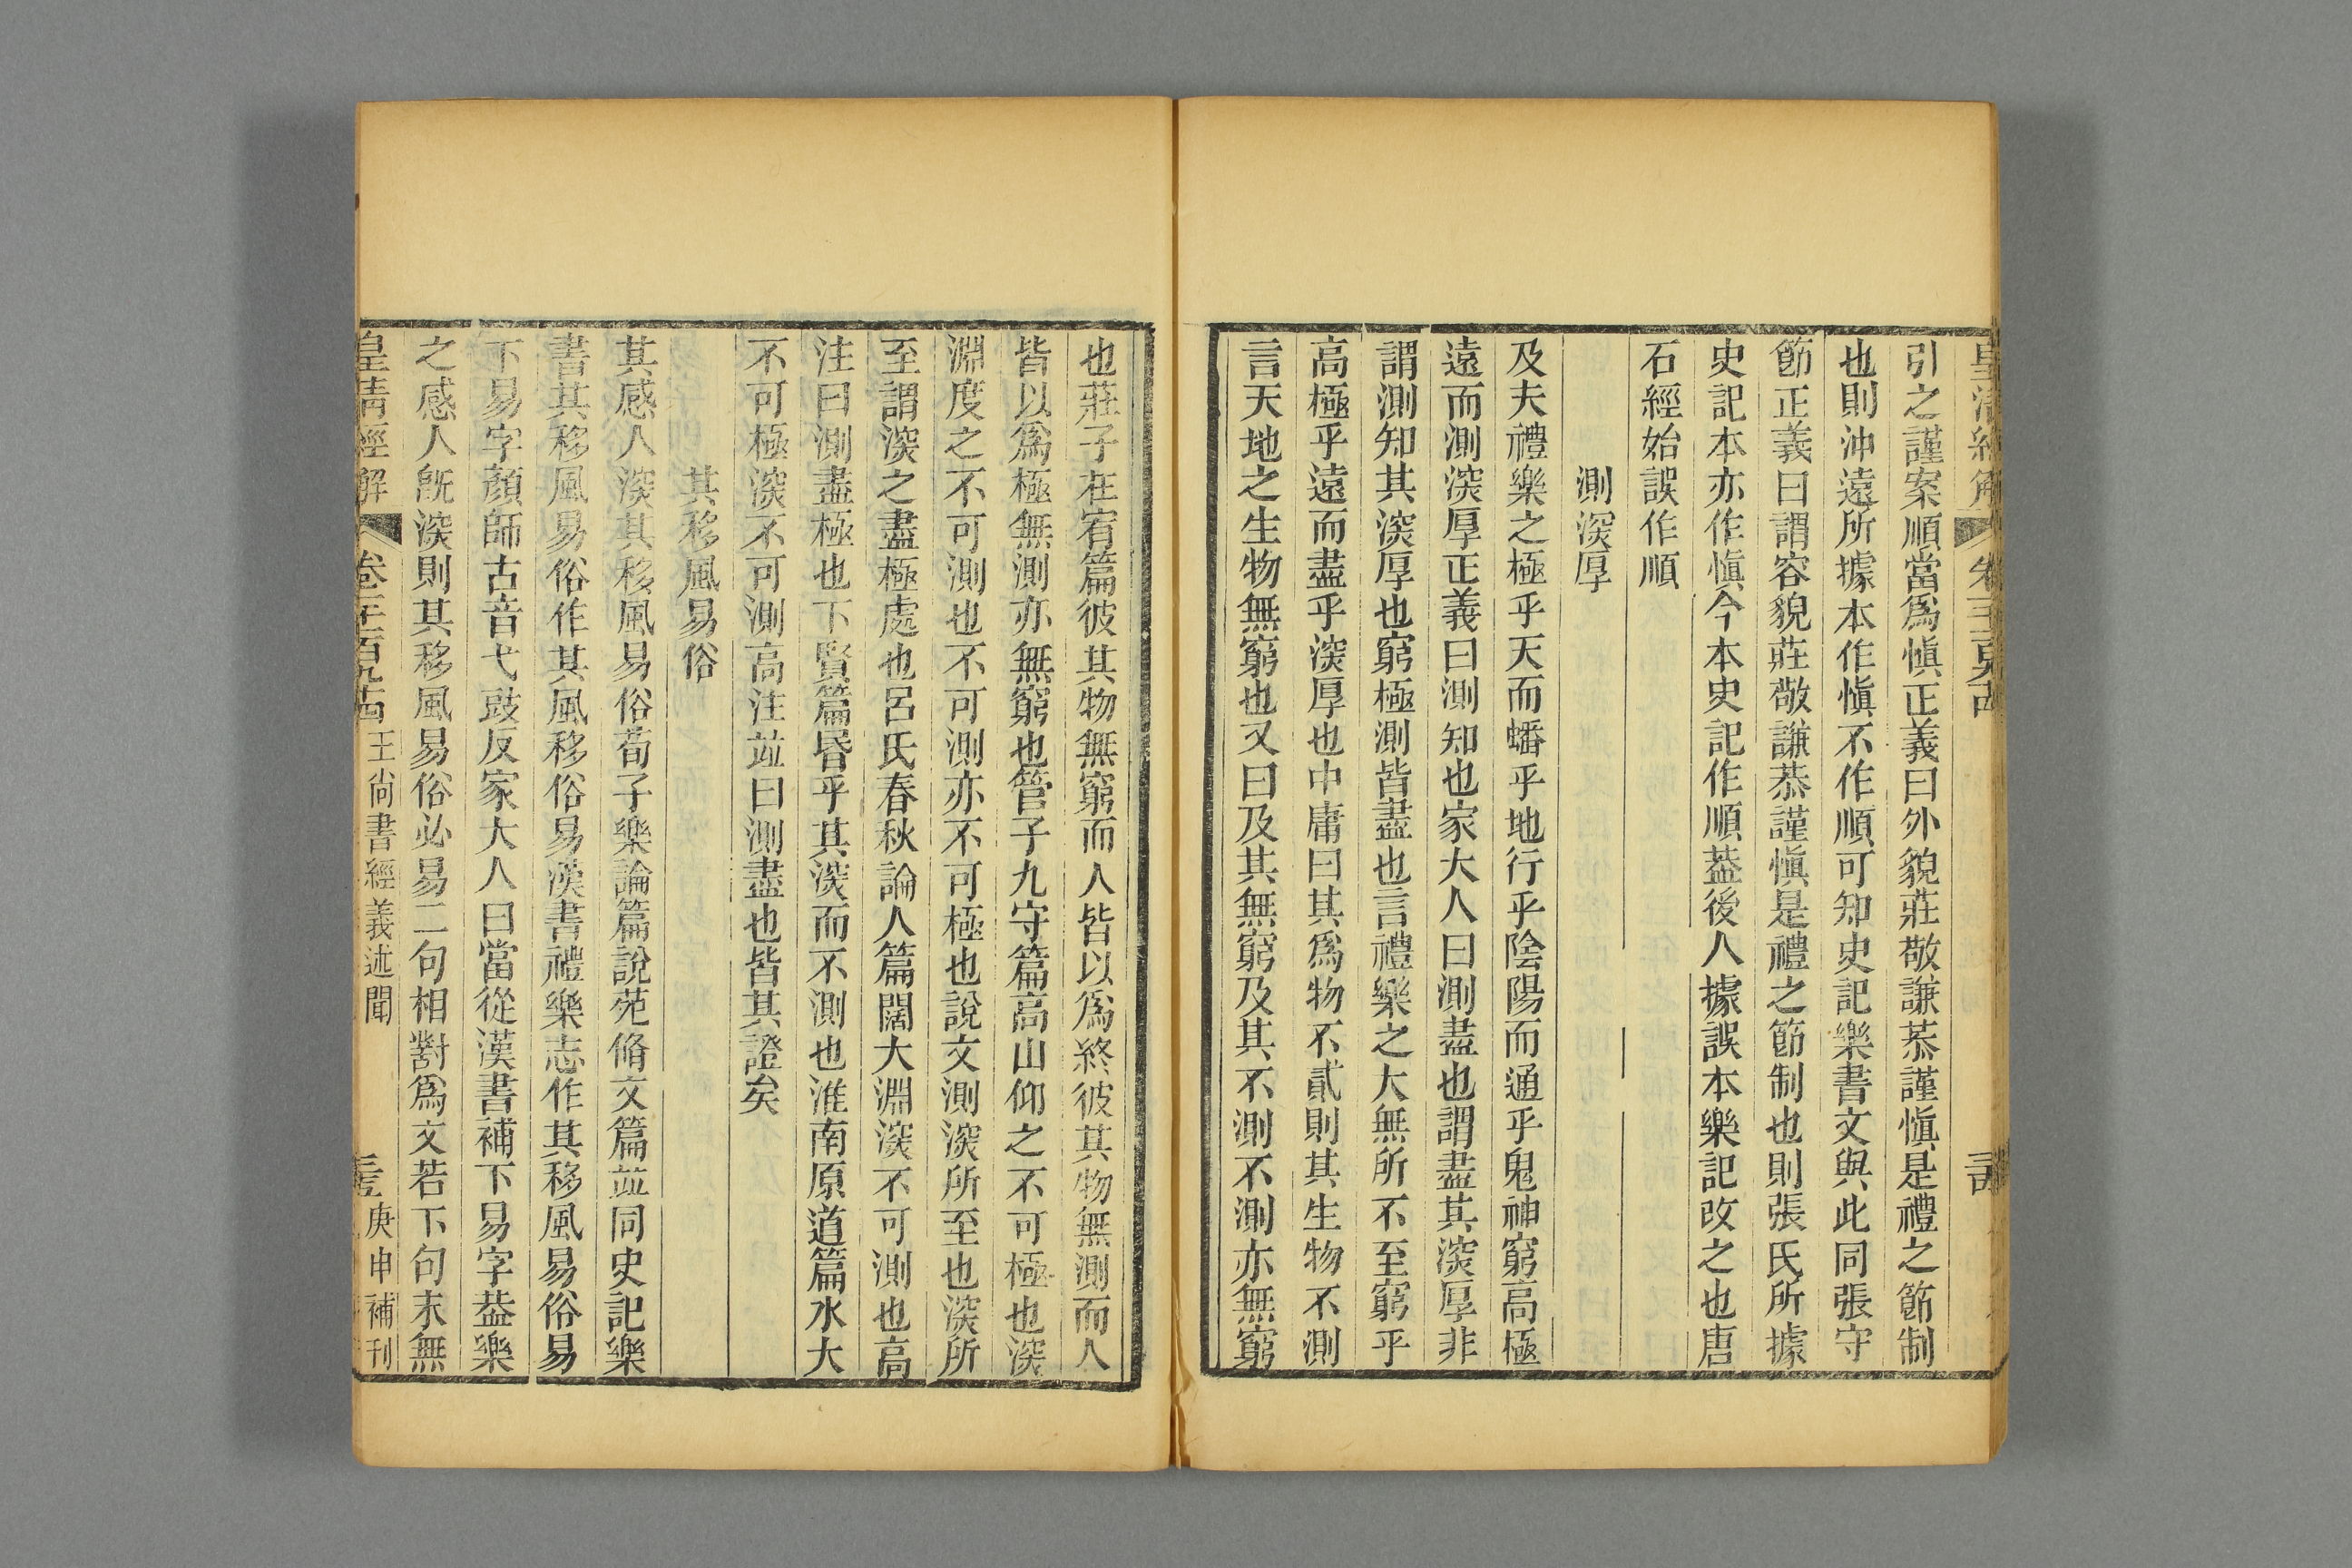 引之謹案順當爲愼正義曰外貌莊敬謙恭謹愼是禮之節制
也則沖遠所據本作愼不作順可知史記樂書文與此同張守
節正義曰謂容貌莊敬謙恭謹愼是禮之節制也則張氏所據
史記本亦作愼今本史記作順葢後人據誤本樂記改之也唐
石經始誤作順
測深厚
及夫禮樂之極乎天而蟠乎地行乎陰陽而通乎鬼神窮高極
遠而測深厚正義曰測知也家大人曰測盡也謂盡其深厚非
謂測知其深厚也窮極測皆盡也言禮樂之大無所不至窮乎
高極乎遠而盡乎深厚也中庸曰其爲物不貳則其生物不測
言天地之生物無窮也又曰及其無窮及其不測不測亦無窮
也莊子在宥篇彼其物無窮而人皆以爲終彼其物無測而人
皆以爲極無測亦無窮也管子九守篇高山仰之不可極也深
淵度之不可測也不可測亦不可極也說文測深所至也深所
至謂深之盡極處也呂氏春秋論人篇闊大淵深不可測也高
注曰測盡極也下賢篇昏乎其深而不測也淮南原道篇水大
不可極深不可測高注竝曰測盡也皆其證矣
其移風易俗
其感人深其移風易俗荀子樂論篇說苑脩文篇竝同史記樂
書其移風易俗作其風移俗易漢書禮樂志作其移風易俗易
下易字顏師古音弋豉反家大人曰當從漢書補下易字葢樂
之感人旣深則其移風易俗必易二句相對爲文若下句末無
皇淸經解 卷一千一百九十四 王尙書經義述聞 庚申補刊